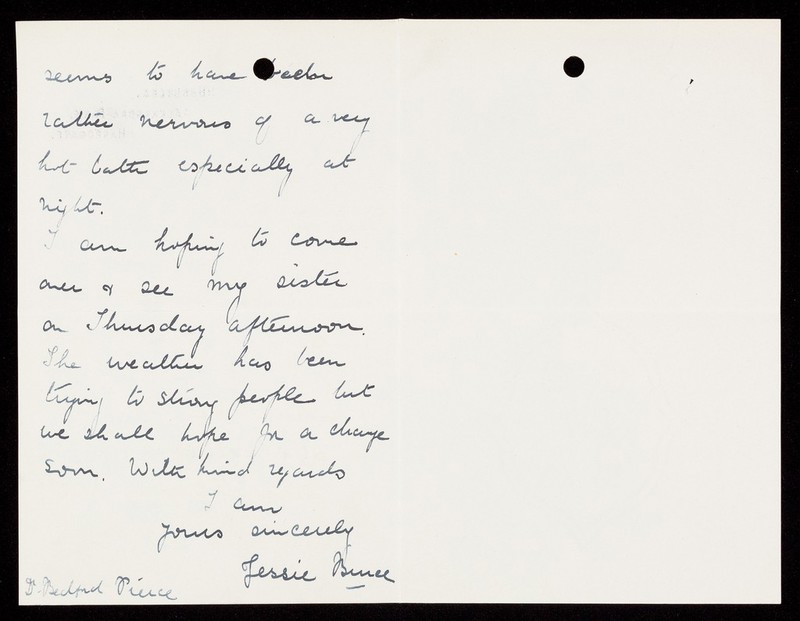 seems to have been
rather nervous of a very
hot bath especially at
night.
I am hoping to come
over & see my sister
on Thursday afternoon.
The weather has been
trying to strong people but
we shall hope for a change
soon. With kind regards
I am
Yours sincerely
Jessie Bruce
Dr. Bedford Pierce